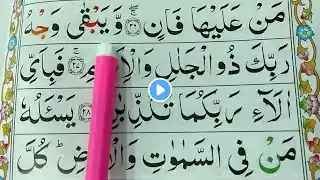 مَنْ عَلَيْهَا فَانٍ ۚ‏﴿۲۶﴾ وَّيَبْقٰى وَجْهُ
رَبِّكَ ذُو الْجَلٰلِ ﴿۲۷﴾ فَبِاَيِّ
اٰلَآءِ رَبِّكُمَا تُكَذِّبٰنِ ﴿۲۸﴾ يَسْئَلُهٗ
مَنْ فِي السَّمٰوٰتِ وَالْاَرْضِ ؕ كُلَّ